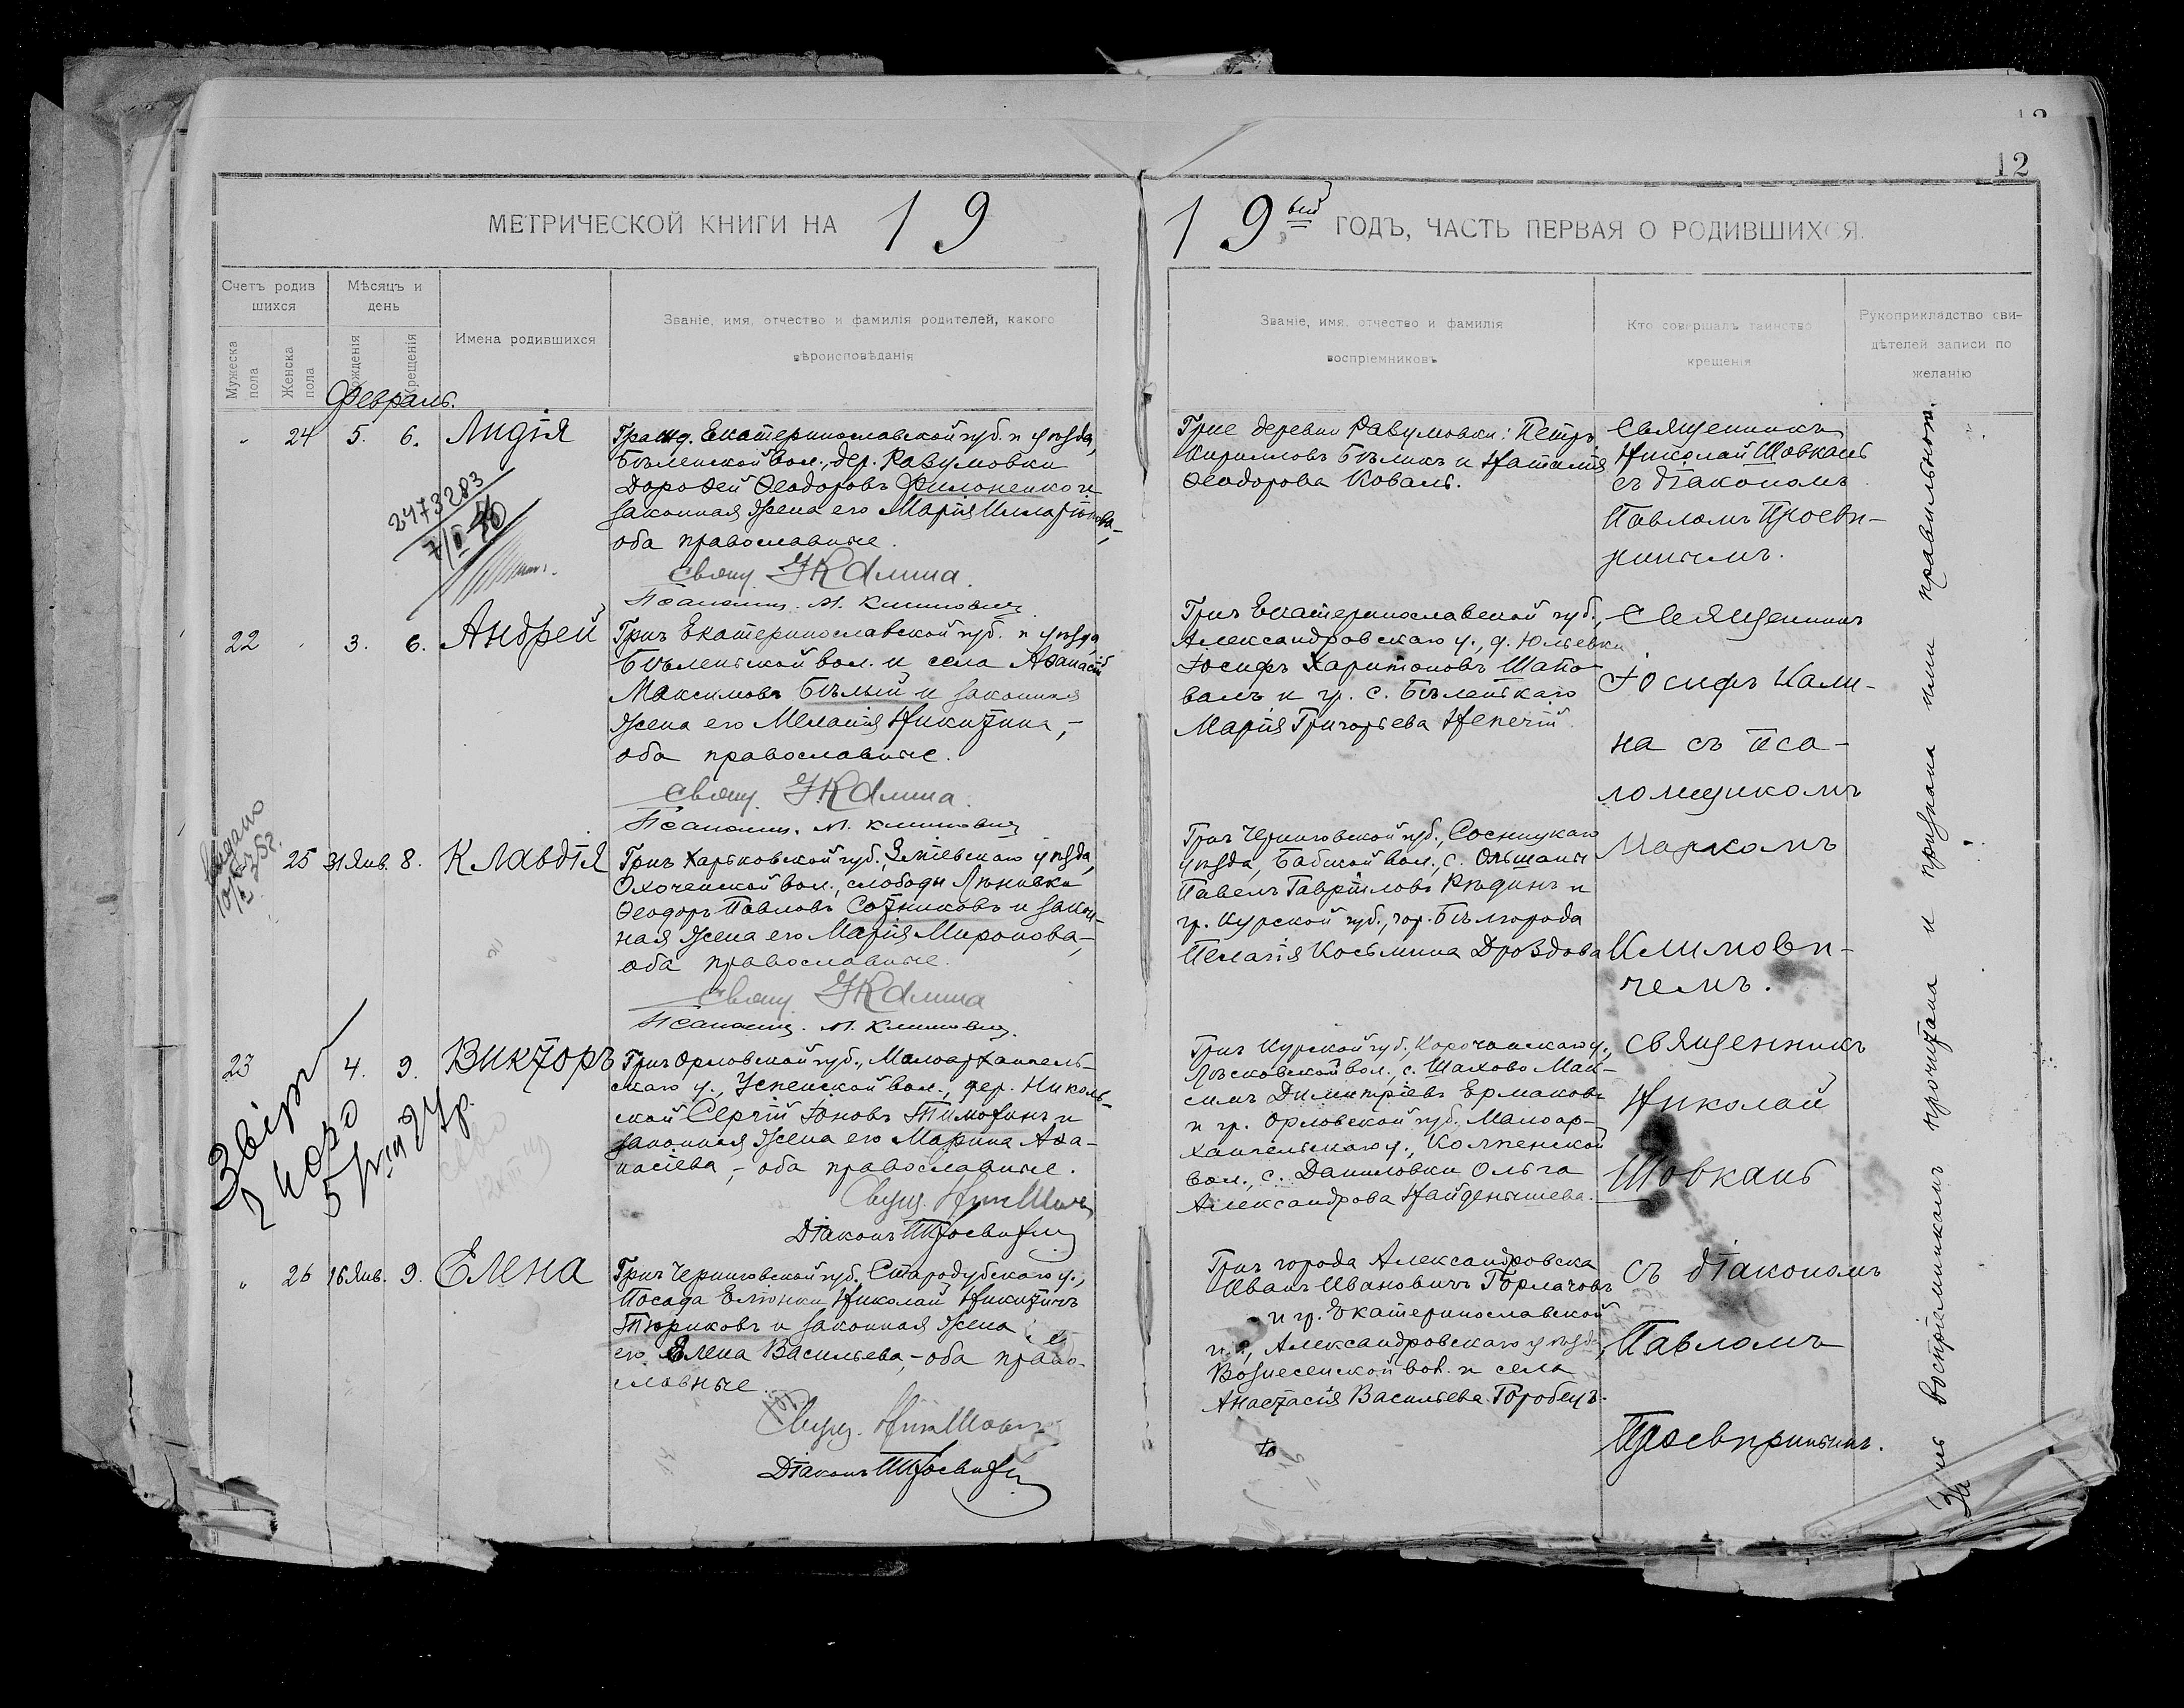 12
МЕТРИЧЕСКОЙ КНИГИ НА 19
19 вый ГОДЪ, ЧАСТЬ ПЕРВАЯ О РОДИВШИХСЯ.
Счетъ родив
шихся
Мужеска пола
Женска пола
Мѣсяцъ и
день
Рожденія
Крещенія
Имена родившихся
Званіе, имя, отчество и фамилія родителей, какого
вѣроисповѣданія
Званіе, имя, отчество и фамилія
воспріемниковъ
Кто совершалъ таинство
крещенія
Рукоприкладство сви-
дѣтелей записи по
желанію
Февраль.
24 5. 6. Лидія
2473283
Гражд. Екатеринославской губ. и уѣзда,
Бѣленской вол., дер. Разумовки
Дорофей Ѳеодоровъ Филоненко и
законная жена его Марія Илларіонова,-
оба православные.
Свящ. І Калина.
Псаломщ. М. Климовичъ
Г-не деревни Разумовки: Петръ
Кирилловъ Бѣликъ и Наталія
Ѳеодорова Коваль.
Священникъ
Николай Шовкань
съ діакономъ
Павломъ Просви-
рнинымъ.
22 3. 6. Андрей
Гр-нъ Екатеринославской губ. и уѣзда,
Бѣленской вол. и села Аѳанасій
Максимовъ Бѣлый и законная
жена его Меланія Никитина,-
оба православные.
Свящ. І Калина.
Псаломщ. М. Климовичъ
Гр-нъ Екатеринославской губ.,
Александровскаго у., д. Юльевки
Іосифъ Харитоновъ Шапо-
валъ и гр. с. Бѣленькаго
Марія Григорьева Непечій
Священникъ
Іосифъ Кали-
на съ пса-
ломщикомъ
Маркомъ
Климови-
чемъ.
25 31 Янв. 8. Клавдія
Гр-нъ Харьковской губ., Зміевскаго уѣзда,
Охоченской вол., слободы Лѣновки
Ѳеодоръ Павловъ Сотниковъ и закон-
ная жена его Марія Миронова,-
оба православные.
Свящ. І Калина
Псаломщ. М. Климовичъ.
Гр-нъ Черниговской губ., Сосницкаго
уѣзда, Бабской вол., с. Ольшаны
Павелъ Гавріиловъ Рѣдинъ и
гр. Курской губ., гор. Бѣлгорода
Пелагія Косьмина Дроздова
23 4. 9. Викторъ
Гр-нъ Орловской губ., Малоархангель-
скаго у., Успенской вол., дер. Николь-
ской Сергій Іоновъ Тимохинъ и
законная жена его Марина Аѳа-
насіева,- оба православные.
Діаконъ П Просвирнинъ
Гр-нъ Курской губ., Корочанскаго у.,
вол., с. Шахово Мак-
симъ Димитріевъ Ермаковъ
и гр. Орловской губ. Малоар-
хангельскаго у., Колпенской
вол., с. Даниловки Ольга
Александрова Найденышева.
Священникъ
Николай
Шовкань
съ діакономъ
Павломъ
Просвирнинымъ.
26 16 Янв. 9. Елена
Гр-нъ Черниговской губ. Стародубскаго у.,
Посада Еліонки Николай Никитичъ
Тюриковъ и законная жена
его Елена Васильева,- оба право-
славные.
Діаконъ П Просвирнинъ
Гр-нъ города Александровска
Иванъ Ивановичъ Горлачовъ
и гр. Екатеринославской
г., Александровскаго уѣзда,
Вознесенской вол. и села
Анастасія Васильева Горобецъ.
Запись воспріемникамъ прочитана и признана ими правильной.